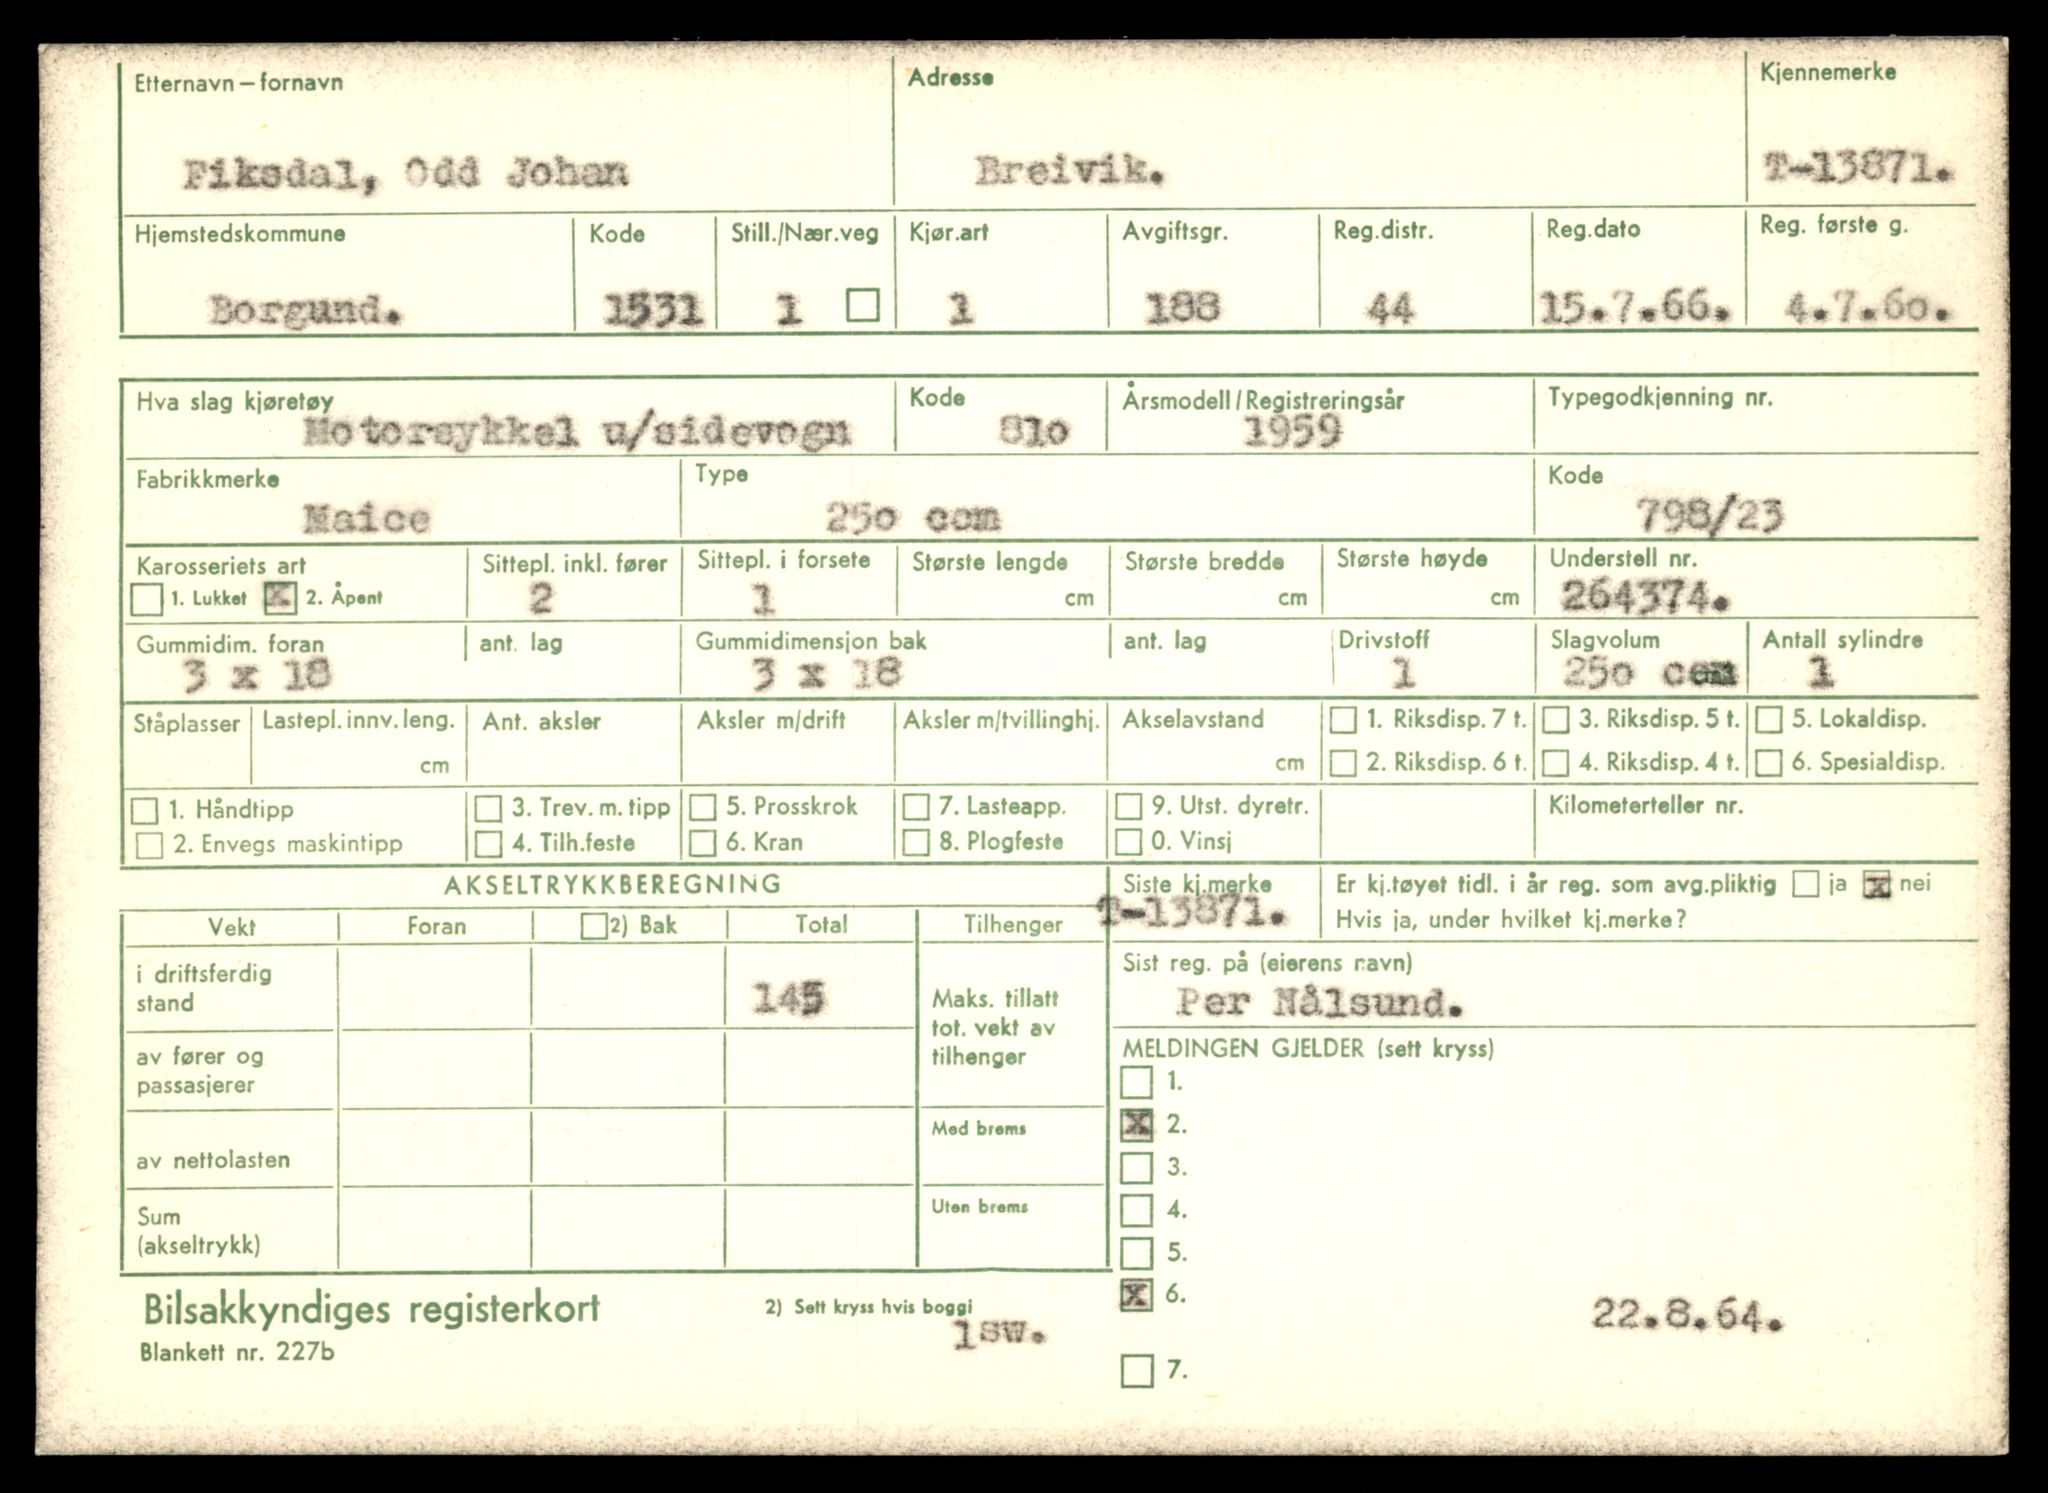 Etternavn – fornavn Adresse Kjennemerke
Fiksdal, Odd Johan Breivik. T-13871.
Hjemstedskommune Kode Still./Nær.veg Kjør.art Avgiftsgr. Reg.distr. Reg.dato Reg. første g.
Borgund. 1531 1 1 188 44 15.7.66. 4.7.60.
Hva slag kjøretøy Kode Årsmodell/Registreringsår Typegodkjenning nr.
Motorsykkel u/sidevogn 81o 1959
Fabrikkmerke Type Kode
Maice 25o ccm 798/23
Karosseriets art Sittepl. inkl. fører Sittepl. i forsete Største lengde Største bredde Største høyde Understell nr.
1. Lukket X 2. Åpent 2 1 cm cm cm 264374.
Gummidim. foran ant. lag Gummidimensjon bak ant. lag Drivstoff Slagvolum Antall sylindre
3 x 18 3 x 18 1 25o ccm 1
Ståplasser Lastepl. innv. leng. Ant. aksler Aksler m/drift Aksler m/tvillinghj. Akselavstand 1. Riksdisp. 7 t. 3. Riksdisp. 5 t. 5. Lokaldisp.
cm cm 2. Riksdisp. 6 t. 4. Riksdisp. 4 t. 6. Spesialdisp.
1. Håndtipp 3. Trev. m. tipp 5. Prosskrok 7. Lasteapp. 9. Utst. dyretr. Kilometerteller nr.
2. Envegs maskintipp 4. Tilh.feste 6. Kran 8. Plogfeste 0. Vinsj
AKSELTRYKKBEREGNING Siste kj.merke Er kj.tøyet tidl. i år reg. som avg.pliktig ja x nei
T-13871. Hvis ja, under hvilket kj.merke?
Vekt Foran 2) Bak Total Tilhenger
i driftsferdig stand 145
Maks. tillatt tot. vekt av tilhenger
Sist reg. på (eierens navn)
Per Nålsund.
av fører og passasjerer
MELDINGEN GJELDER (sett kryss)
1.
Med brems X 2.
av nettolasten 3.
Uten brems 4.
Sum (akseltrykk) 5.
X 6.
Bilsakkyndiges registerkort 2) Sett kryss hvis boggi 22.8.64.
1sw.
Blankett nr. 227b 7.